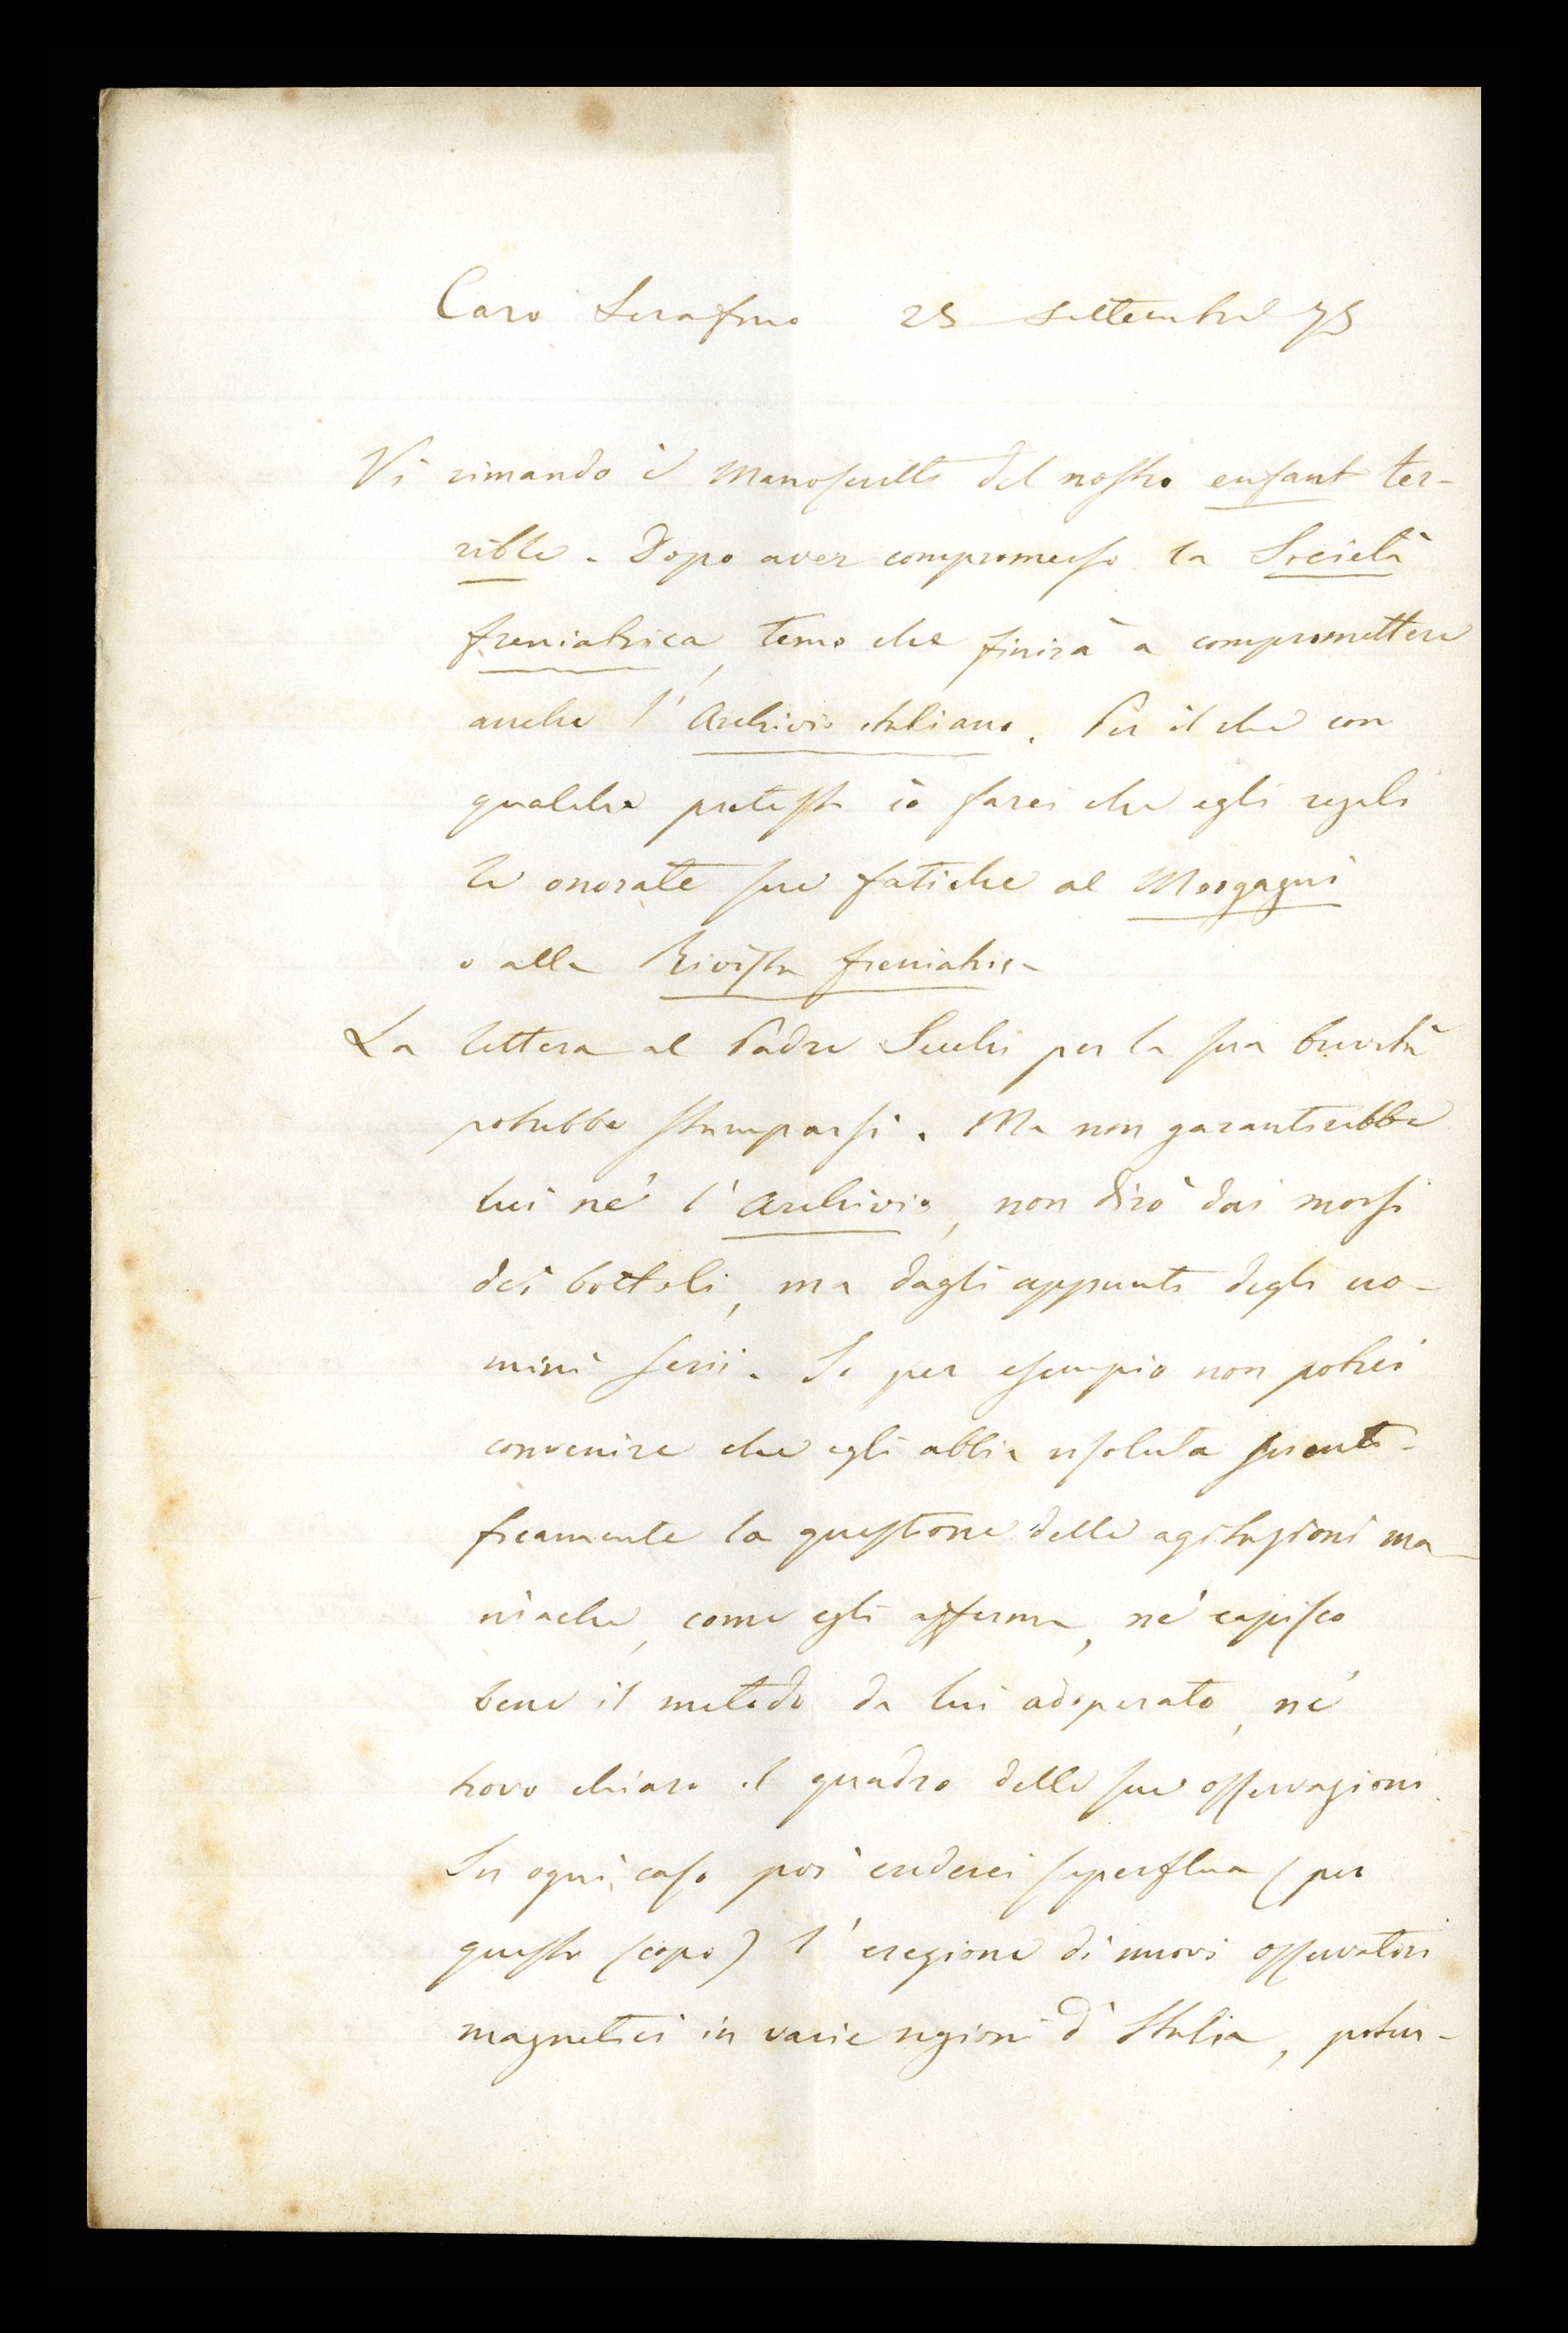 Caro Serafino 25 settembre 75
Vi rimando il manoscritto del nostro enfant ter-
rible. Dopo aver compromesso la Società
freniatrica, temo che finirà a compromettere
anche l'Archivio italiano. Per il che con
qualche pretesto io farei che egli regali
le onorate sue fatiche al Morgagni
o alla Rivista freniatrica
La lettera al Padre Secchi per la sua brevità
potrebbe stamparsi. Ma non garantirebbe
lui nè l'Archivio, non dirò dai morsi
dei bottoli, ma dagli appunti degli uo-
mini serii. Io per esempio non potrei
convenire che egli abbia risoluta scienti-
ficamente la questione delle agitazioni ma-
niache, come egli afferma, nè capisco
bene il metodo da lui adoperato, nè
trovo chiaro il quadro delle sue osservazioni.
In ogni caso poi crederei superflua (per
questo scopo) l'erezione di nuovi osservatori
magnetici in varie regioni d'Italia, poten-